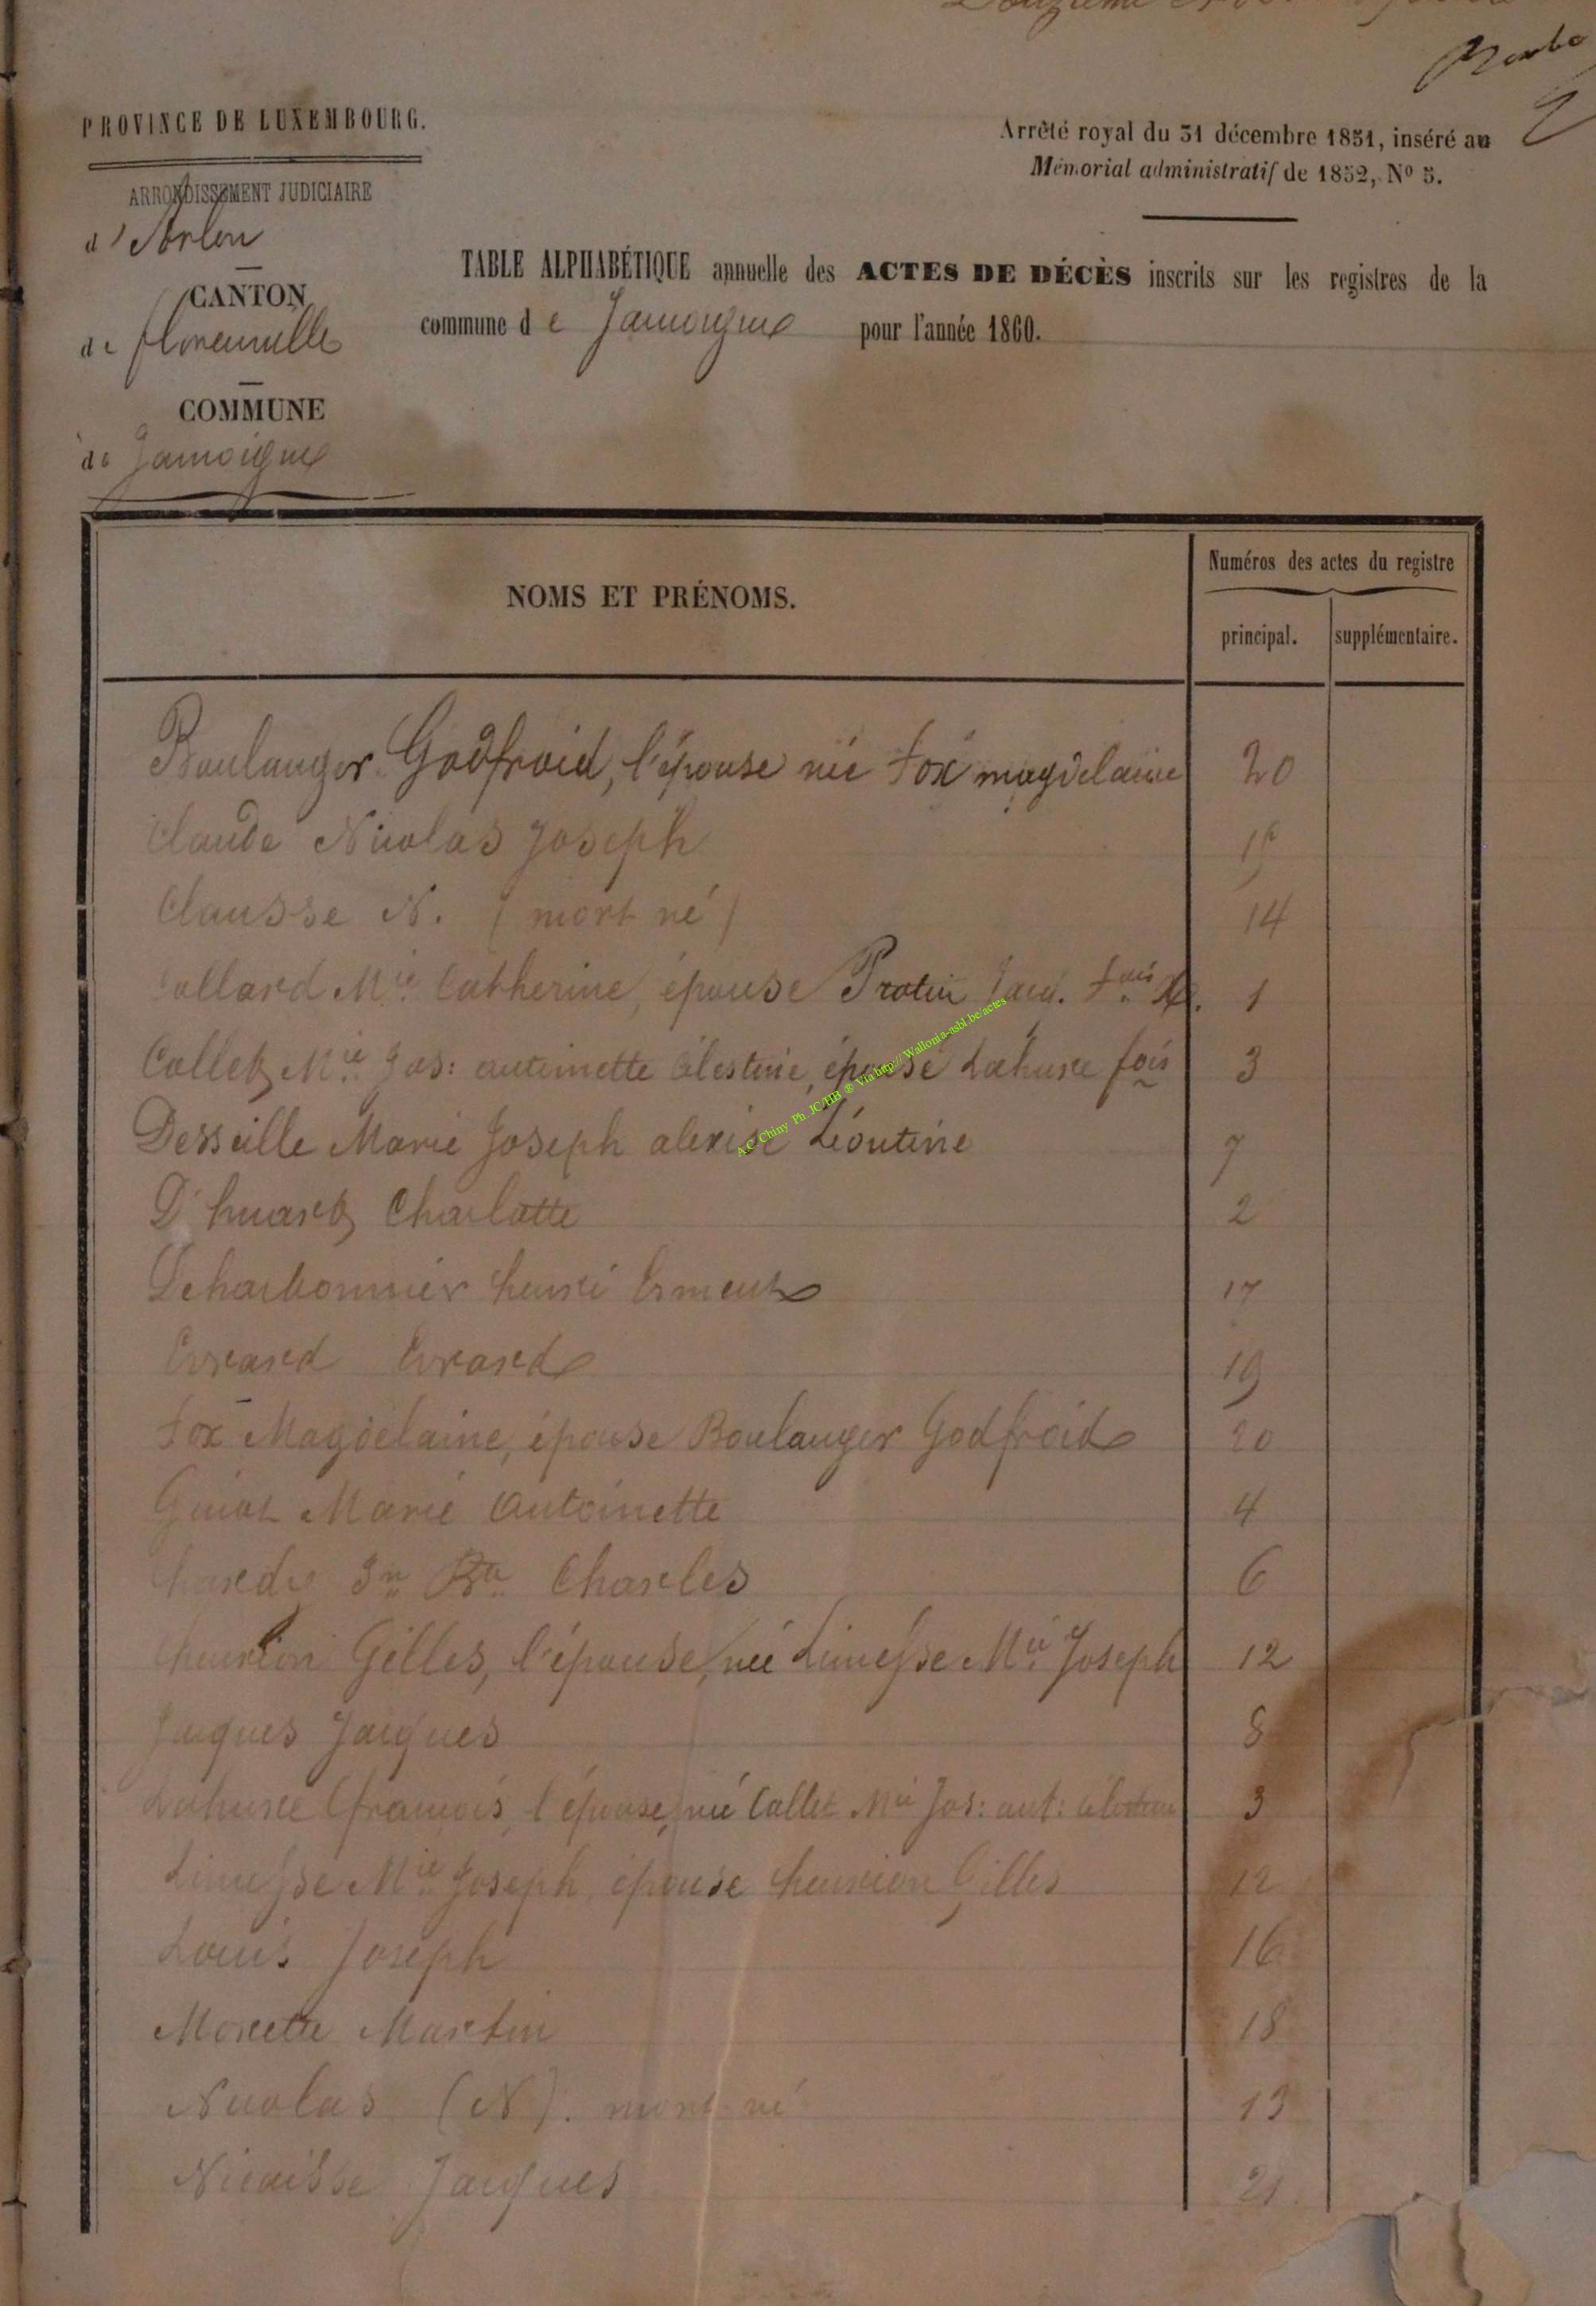 PROVINCE DE LUXEMBOURG.
ARRONDISSEMENT JUDICIAIRE
d'Arlon
CANTON
de florenville
COMMUNE
de Jamoigne
Arrêté royal du 31 décembre 1851, inséré au
Mémorial administratif de 1852, No 5.
TABLE ALPHABÉTIQUE annuelle des ACTES DE DÉCÈS inscrits sur les registres de la
commune de Jamoigne pour l'année 1860.
NOMS ET PRÉNOMS.
Numéros des actes du registre
principal. supplémentaire.
Boulanger Godfroid, l'épouse née Fox magdelaine 20
Claude Nicolas Joseph 15
Clausse N. (mort né) 14
Collard Mie Catherine, épouse Protin Jacq. Fois 1
Collet Mie Jos: antoinette Célestine, épouse Lahure fois 3
Desseille Marie Joseph alexise Léontine 7
D'huart Charlotte 2
Decharbonnier henri 17
Evrard Evrard 19
Fox Magdelaine, épouse Boulanger Godfroid 20
Guiot Marie Antoinette 4
hardy Jn Bte Charles 6
henrion Gilles, l'épouse, née Limesse Mie Joseph 12
Jacques Jacques 8
Lahure françois, l'épouse, née Collet Mie Jos: ant: célestine 3
Limesse Mie Joseph, épouse henrion Gilles 12
Louis Joseph 16
Morette Martin 18
Nicolas (N). mort né 13
Nicaisse Jacques 21
A.C. Chiny Ph. JC/HB ® Via http:// Wallonia-asbl.be/actes